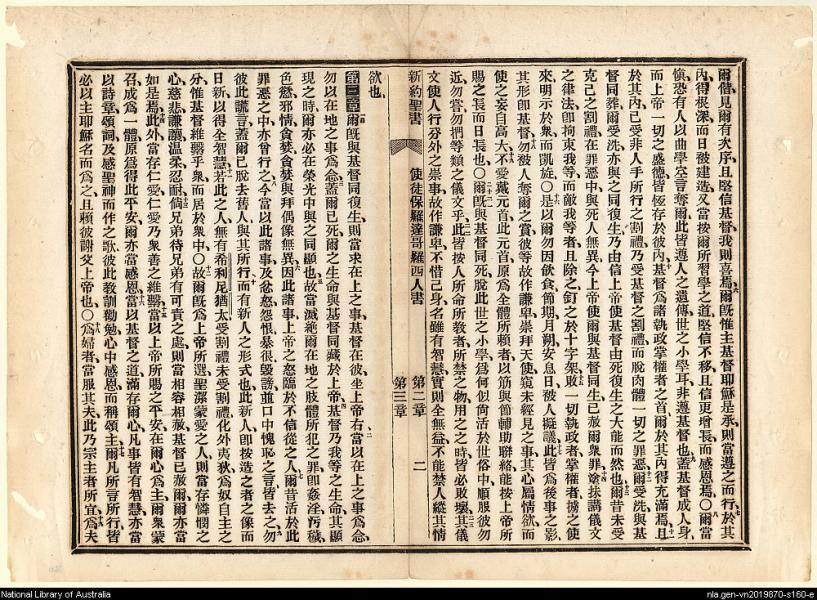 爾儕見爾有次序、且堅信基督、我則喜焉、爾旣惟主基督耶穌是承、則當遵之而行、於其
內得根深而日被建造、又當按爾所習學之道、堅信不移、且信更增長而感恩焉、〇爾當
愼、恐有人以曲學空言奪爾、此皆遵人之遺傳、世之小學耳、非遵基督也、蓋基督成人身、
而上帝一切之盛德皆恆存於彼內、基督爲諸執政掌權者之首、爾於其內得充滿焉、且
於其內已受非人手所行之割禮、乃受基督之割禮、而脫肉體一切之罪惡、爾受洗與基
督同葬、爾受洗亦與之同復生、乃由信上帝使基督由死復生之大能而然也、爾昔未受
克己之割禮、在罪惡中與死人無異、今上帝使爾與基督同生、已赦爾衆罪、塗抹講儀文
之律法、卽拘束我等、而敵我等者、且除之、釘之於十字架、敗一切執政者掌權者、擄之使
來、明示於衆而凱旋、〇是以爾勿因飲食、節期、月朔、安息日、被人擬議、此皆爲後事之影、
其形卽基督、勿被人奪爾之賞、彼等故作謙卑、崇拜天使、窺未經見之事、其心屬情欲、而
使之妄自高大、不愛戴元首、此元首、原爲全體所賴者、以筋與節輔助聯絡、能按上帝所
賜之長而日長也、〇爾旣與基督同死、脫此世之小學、爲何似尙活於世俗中、順服彼勿
近、勿嘗、勿捫等類之儀文乎、此皆按人所命所教者、所禁之物、用之之時皆必敗壞、其儀
文使人行分外之崇事、故作謙卑、不惜己身、名雖有智慧、實則全無益、不能禁人縱其情
新約聖書 使徒保羅達哥羅西人書 第二章 第三章 二
欲也、
第三章 爾旣與基督同復生、則當求在上之事、基督在彼坐上帝右、當以在上之事爲念、
勿以在地之事爲念、蓋爾已死、爾之生命與基督同藏於上帝、基督乃我等之生命、其顯
現之時、爾亦必在榮光中與之同顯也、故當滅絶爾在地之肢體所犯之罪、卽姦淫、汚穢、
色慾、邪情、貪婪、貪婪與拜偶像無異、因此諸事、上帝之怒臨於不信從之人、爾昔活於此
罪惡之中、亦曾行之、今當以此諸事、及忿怒、怨恨、暴很、毀謗、並口中愧恥之言、皆去之、勿
彼此謊言、蓋爾已脫去舊人與其所行、而有新人之形式也、此新人卽按造之者之像而
日新、以得全智慧、若此之人、無有希利尼猶太、受割禮未受割禮、化外夷狄、爲奴自主之
分、惟基督維繫乎衆、而居於衆中、〇故爾旣爲上帝所選、聖潔蒙愛之人、則當存憐憫之
心、慈悲謙讓、溫柔忍耐、倘兄弟待兄弟有可責之處、則當相容相赦、基督已赦爾、爾亦當
如是焉、此外當存仁愛、仁愛乃衆善之維繫、當以上帝所賜之平安、在爾心爲主、爾衆蒙
召成爲一體、原爲得此平安、爾亦當感恩、當以基督之道滿存爾心、凡事皆有智慧、亦當
以詩章、頌詞、及感聖神而作之歌、彼此教訓勸勉、心中感恩、而稱頌主、凡所言所行、皆
必以主耶穌名而爲之、且賴彼謝父上帝也、〇爲婦者當服其夫、此乃宗主者所宜、爲夫
National Library of Australia
nla.gen-vn2019870-s160-e